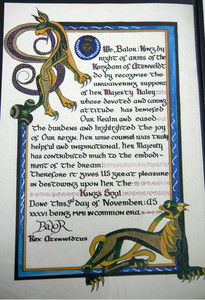 We, Balor: King by
right of arms of the
Kingdom of Atenveldt
do by recognise the
unwavering support
of her Majesty Haley
whose devoted and caring
attitude has benefited
Our Realm and eased
the burdens and highlighted the joy
of Our reign. her wise counsel was truly
helpful and inspirational. her Majesty
has contributed much to the embodi-
ment of the dream.
Therefore it gives US great pleasure
in bestowing upon her the
King's Sigil
Done this 3rd day of November: AS
xxxvi being MMI in common era.
Balor
Rex Atenveldtus